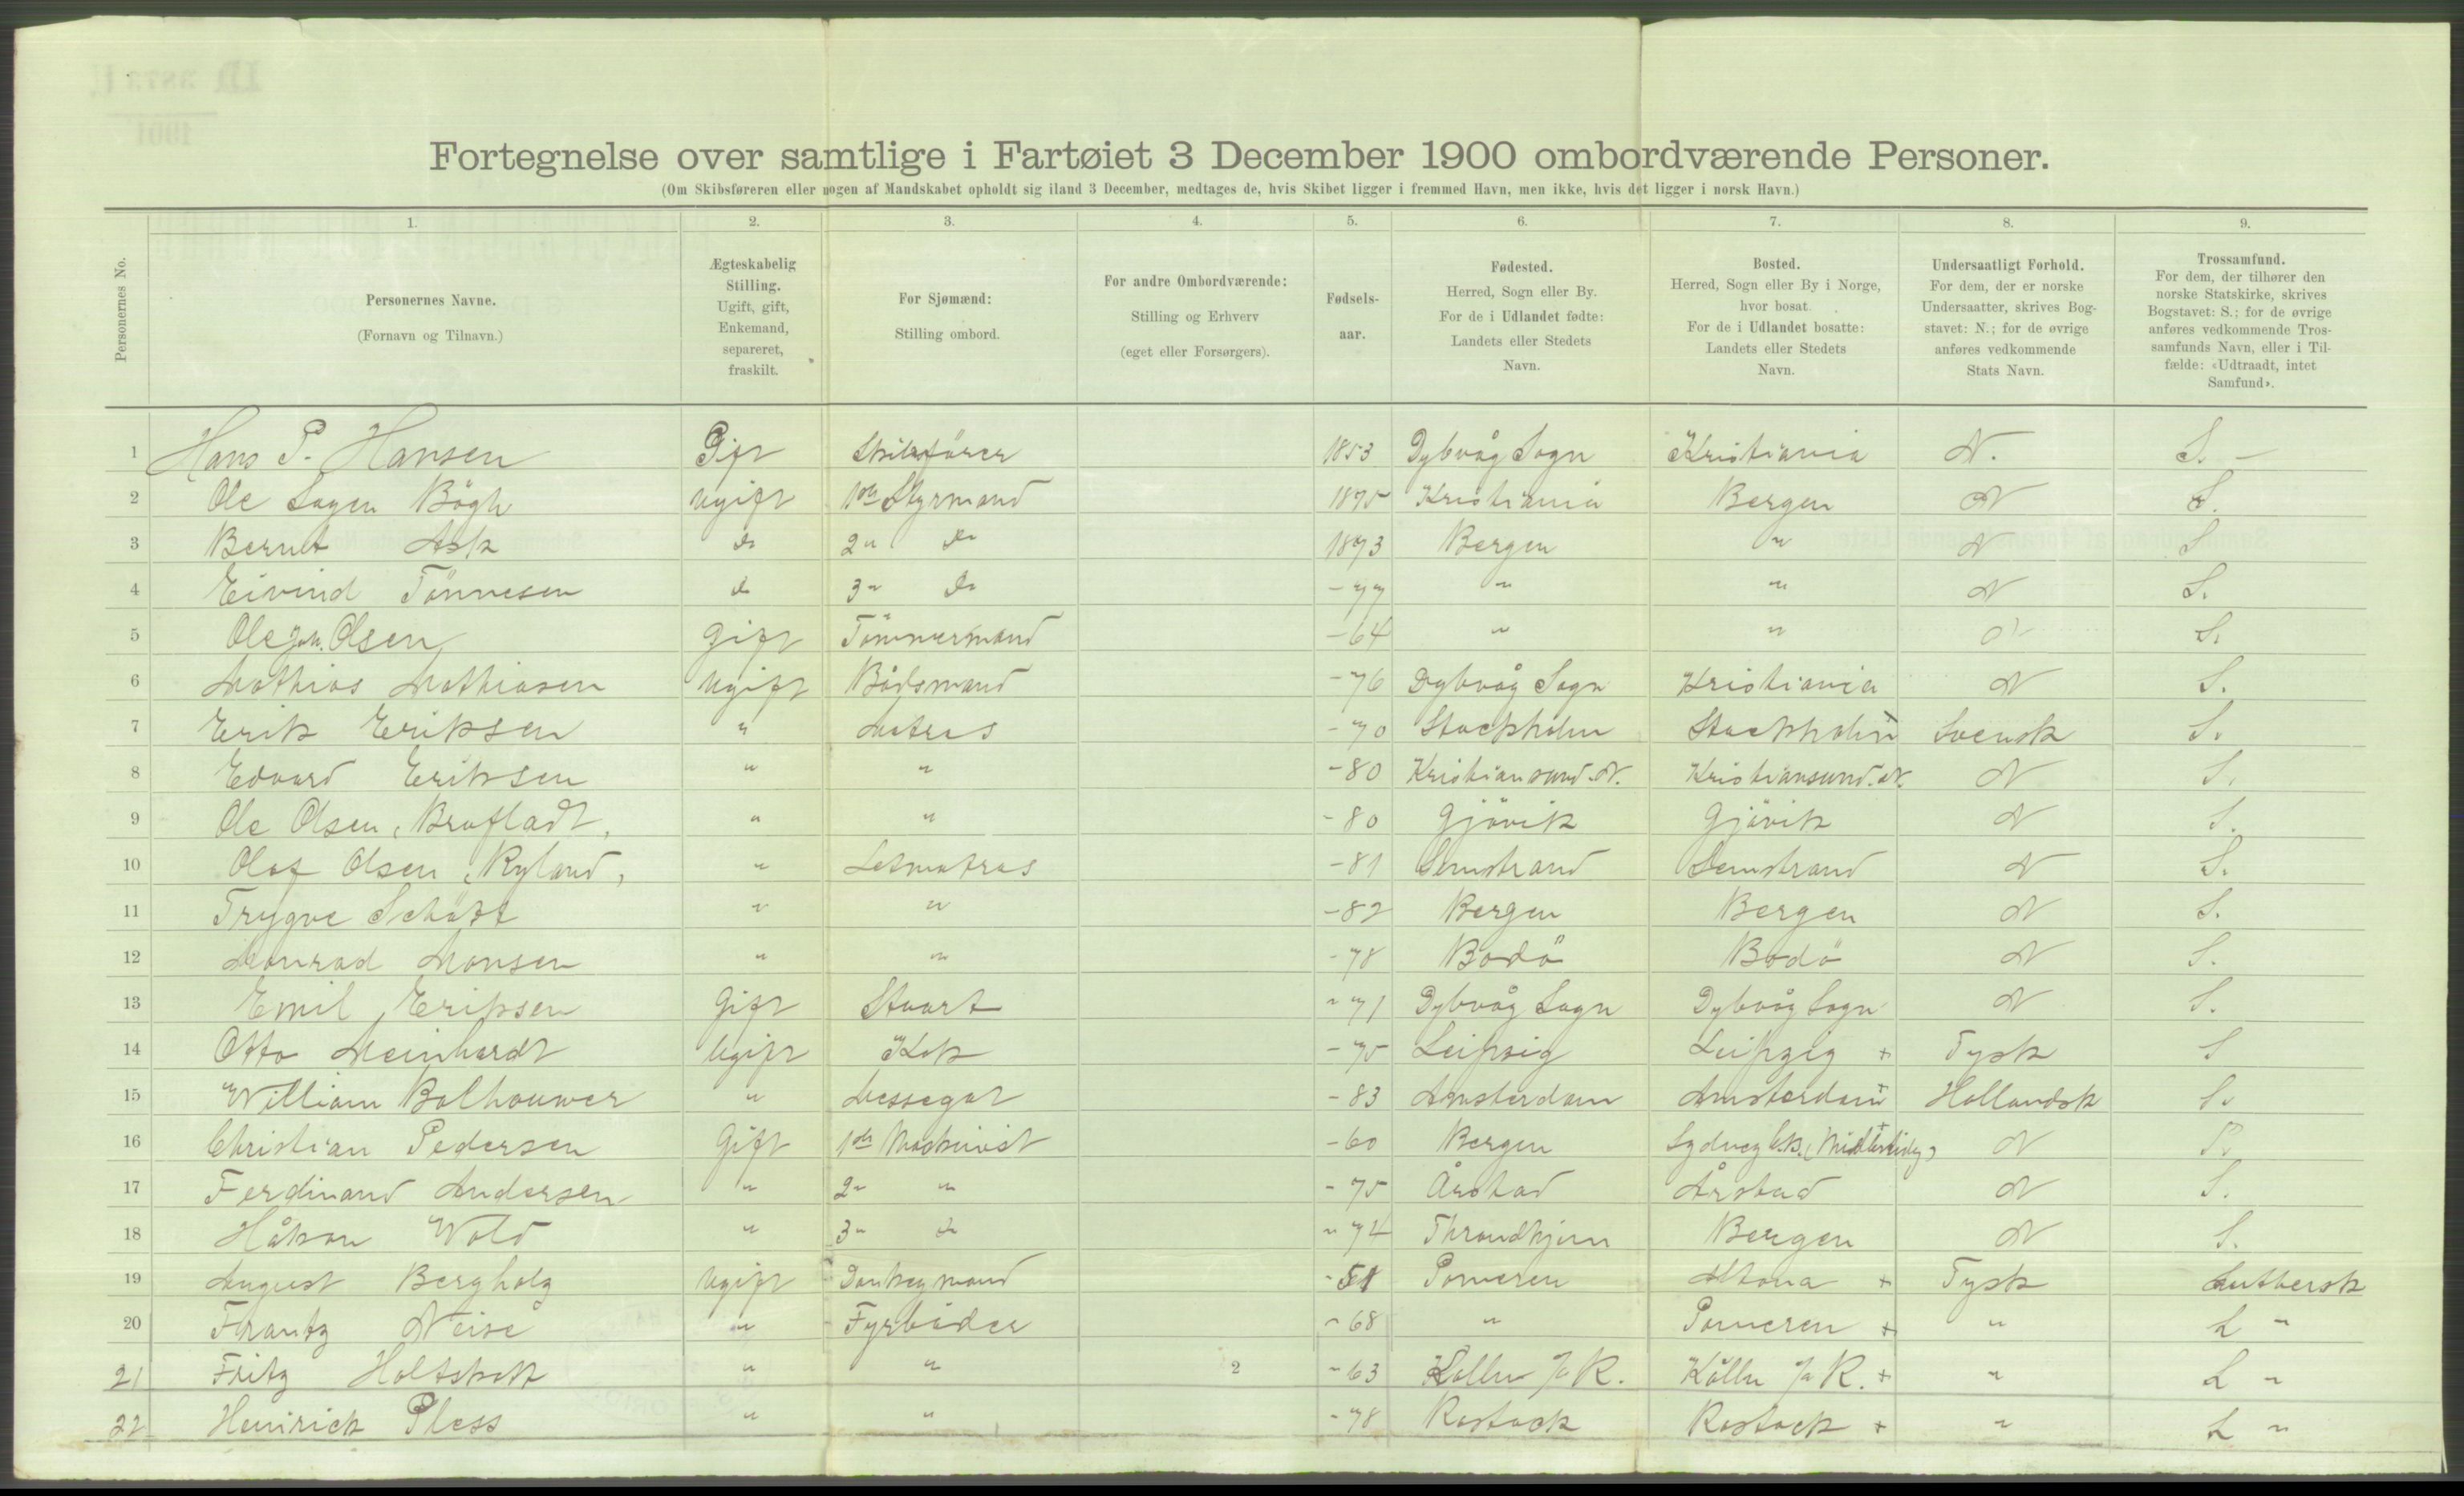 Fortegnelse over samtlige i Fartøiet 3 December 1900 ombordværende Personer.
(Om Skibsføreren eller nogen af Mandskabet opholdt sig iland 3 December, medtages de, hvis Skibet ligger i fremmed Havn, men ikke, hvis det ligger i norsk Havn.)
Personernes No.
1. 2. 3. 4. 5. 6. 7. 8. 9.
Personernes Navne.
(Fornavn og Tilnavn.)
Ægteskabelig
Stilling.
Ugift, gift,
Enkemand,
separeret,
fraskilt.
For Sjømænd:
Stilling ombord.
For andre Ombordværende:
Stilling og Erhverv
(eget eller Forsørgers).
Fødsels-
aar.
Fødested.
Herred, Sogn eller By.
For de i Udlandet fødte:
Landets eller Stedets
Navn.
Bosted.
Herred, Sogn eller By i Norge,
hvor bosat.
For de i Udlandet bosatte:
Landets eller Stedets
Navn.
Undersaatligt Forhold.
For dem, der er norske
Undersaatter, skrives Bog-
stavet: N.; for de øvrige
anføres vedkommende
Stats Navn.
Trossamfund.
For dem, der tilhører den
norske Statskirke, skrives
Bogstavet: S.; for de øvrige
anføres vedkommende Tros-
samfunds Navn, eller i Til-
fælde: «Udtraadt, intet
Samfund».
1 Hans P. Hansen Gift Skibsfører 1853 Dybvåg Sogn Kristiania N. S. –
2 Ole Sagen Bögh Ugift 1ste Styrmand 1875 Kristiania Bergen N S.
3 Bernt Ask do 2n do 1873 Bergen " N S
4 Eivind Tönnesen do 3n do - 77 " " N S.
5 Ole Joh. Olsen Gift Tömmermand - 64 " " S.
6 Mathias Mathiasen Ugift Bådsmand - 76 Dybvåg Sogn Kristiania N S.
7 Erik Eriksen " Matros - 70 Stockholm Stockholm Svensk S.
8 Edvard Eriksen " " - 80 Kristiansund. N. Kristiansund. N. N S.
9 Ole Olsen (Brufladt) " " - 80 Gjövik Gjövik N S.
10 Olaf Olsen (Ryland) " Letmatros - 81 Semstrand Semstrand N S.
11 Trygve Schött " " - 82 Bergen Bergen N S.
12 Monrad Monsen " " - 78 Bodö Bodö N S.
13 Emil Eriksen Gift Stuart - 71 Dybvåg Sogn Dybvåg Sogn N S.
14 Otto Meinhardt Ugift Kok - 75 Leipsig Leipzig + Tysk S
15 William Bolhouwer " Messegut - 83 Amsterdam Amsterdam + Hollandsk S.
16 Christian Pedersen Gift 1ste Maskinist - 60 Bergen Sydney C.B. N S.
17 Ferdinand Andersen " 2n " - 75 Årstad Årstad N S.
18 Håkon Wold " 3n do - 74 Throndhjem Bergen N S.
19 August Bergholz Ugift Donkeymand - 51 Pomeren Altona + Tysk Luthersk
20 Frantz Neise " Fyrböder - 68 " Pomeren + " L "
21 Fritz " " 2 - 63 Kölln / R. Kölln / R. + " L "
22 Heinrich Pless " " - 78 Rostock Rostock + " L "